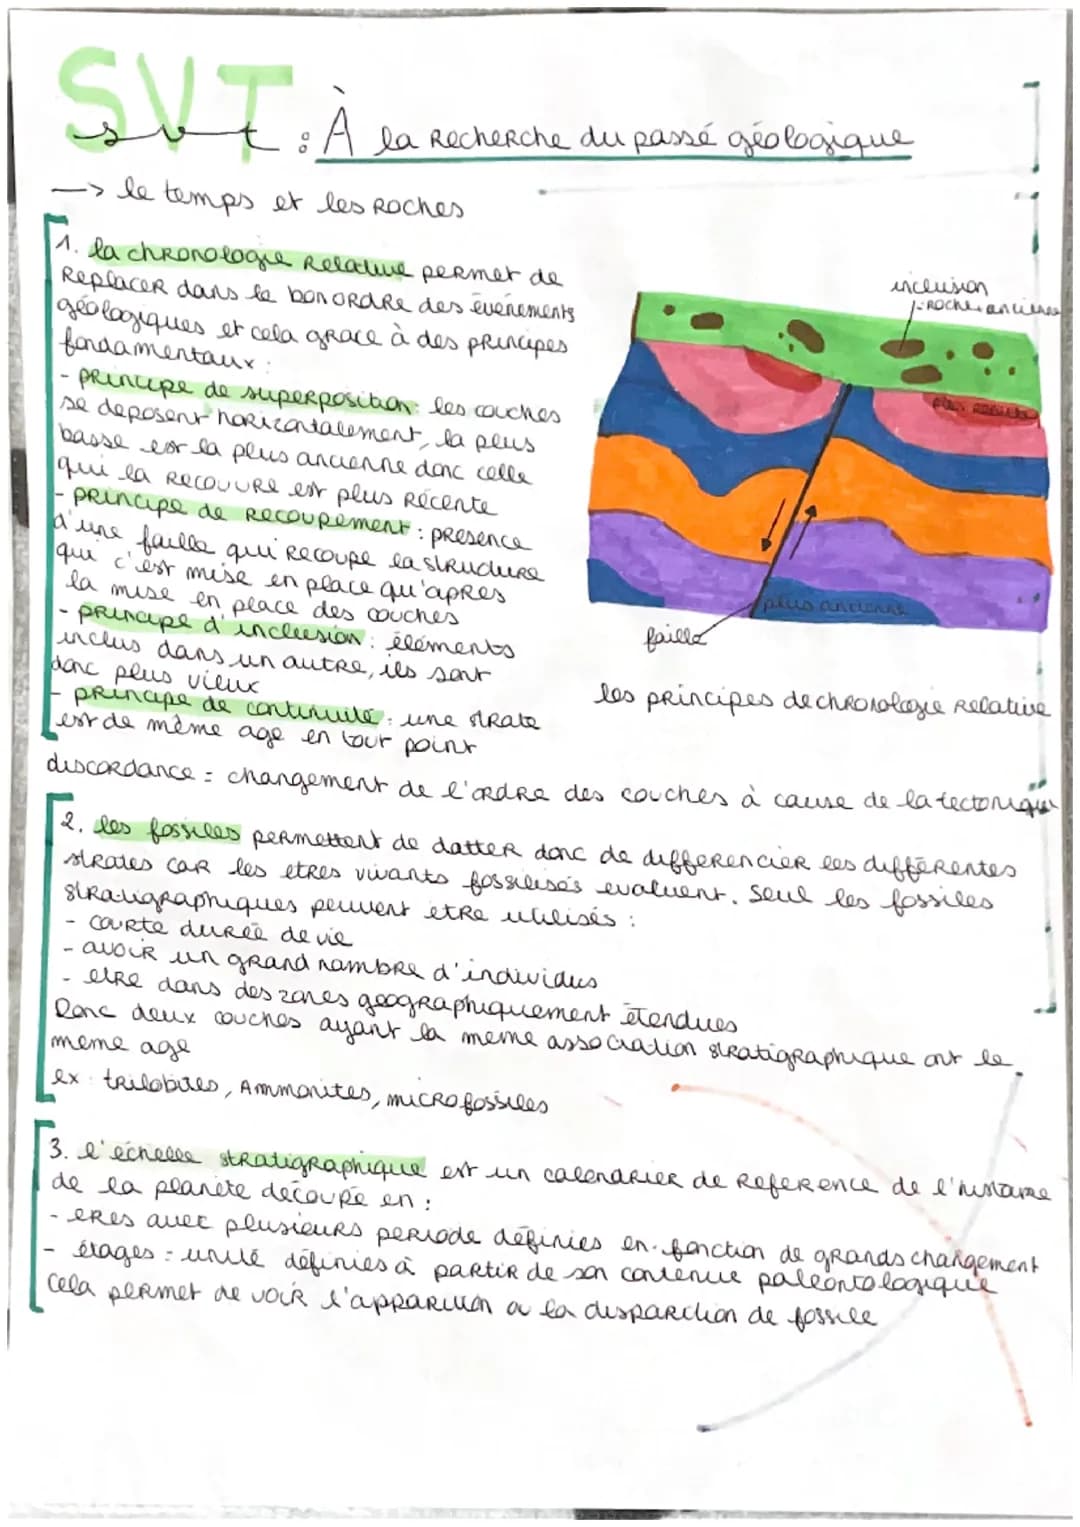 SVT
svt : À la Recherche du passé géologique
—> le temps et les Roches
1. la chronologie Relative permet de
Replacer dans le bon ordre des évenements
géologiques et cela grace à des principes
fondamentaux :
- principe de superposition : les couches
se deposent horizontalement, la plus
basse est la plus ancienne donc celle
qui la recouvre est plus Récente
- principe de Recoupement : présence
d'une faille qui Recoupe la structure
qui c'est mise en place qu'apres
la mise en place des couches
- principe d'inclusion : éléments
inclus dans un autre, ils sont
donc plus vieux
- principe de continuité : une strate
est de même age en tout point
inclusion
= Roche ancienne
plus récente
plus ancienne
faille
les principes de chronologie Relative
discordance = changement de l'ordre des couches à cause de la tectonique
2. les fossiles permettent de datter donc de differencier les différentes
strates car les etres vivants fossilisés evoluent. Seul les fossiles
stratigraphiques peuvent etre utilisés :
- courte durée de vie
- avoir un grand nombre d'individus
- etre dans des zones geographiquement étendues
Donc deux couches ayant la meme association stratigraphique ont le
meme age
ex : trilobites, Ammonites, microfossiles
3. l'échelle stratigraphique est un calendrier de Reference de l'histoire
de la planete découpé en :
- eres avec plusieurs periode définies en fonction de grands changement
- étages : unité définies à partir de son contenue paléontologique
Cela permet de voir l'apparition ou la disparition de fossile